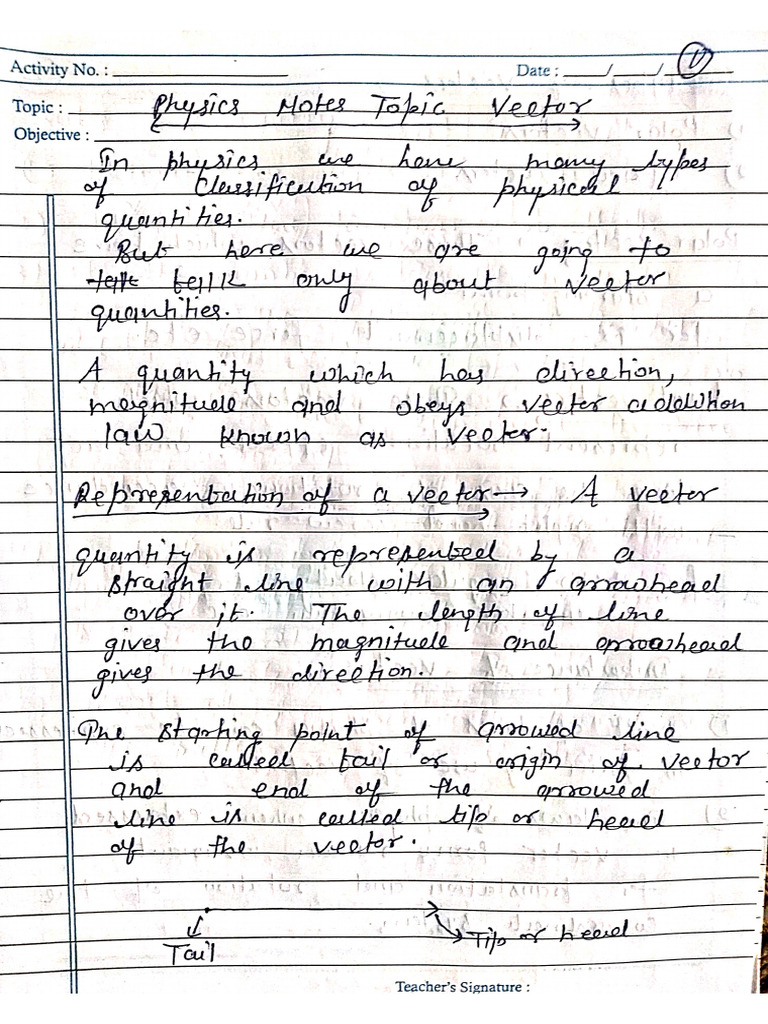 Activity No. :
Date : __/__/__ 1
Topic : Physics Notes Topic Vector
Objective :
In physics we have many types
of classification of physical
quantities.
But here we are going to
talk talk only about vector
quantities.
A quantity which has direction,
magnitude and obeys vector addition
law known as vector.
Representation of a vector → A vector
quantity is represented by a
straight line with an arrowhead
over it. The length of line
gives the magnitude and arrowhead
gives the direction.
The starting point of arrowed line
is called tail or origin of vector
and end of the arrowed
line is called tip or head
of the vector.
Tip or head
Tail
Teacher's Signature :